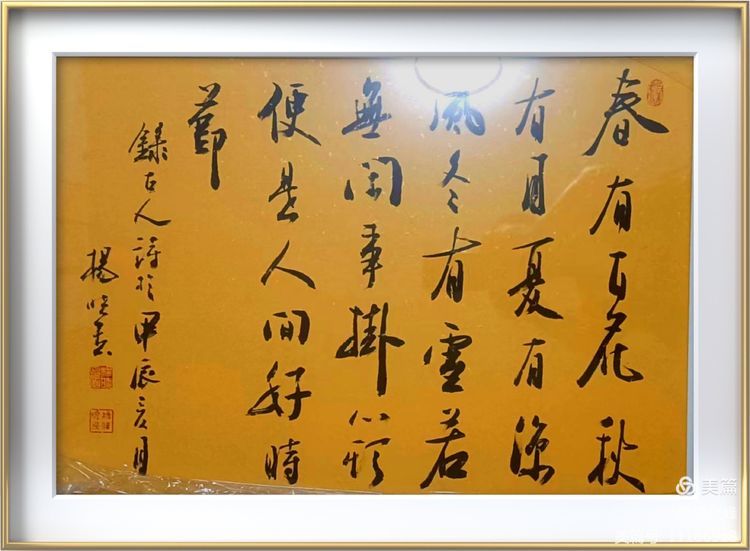 春有百花秋
有月夏有涼
風冬有雪若
無閑事掛心頭
便是人間好時
節
錄古人詩於甲辰月
楊
美篇